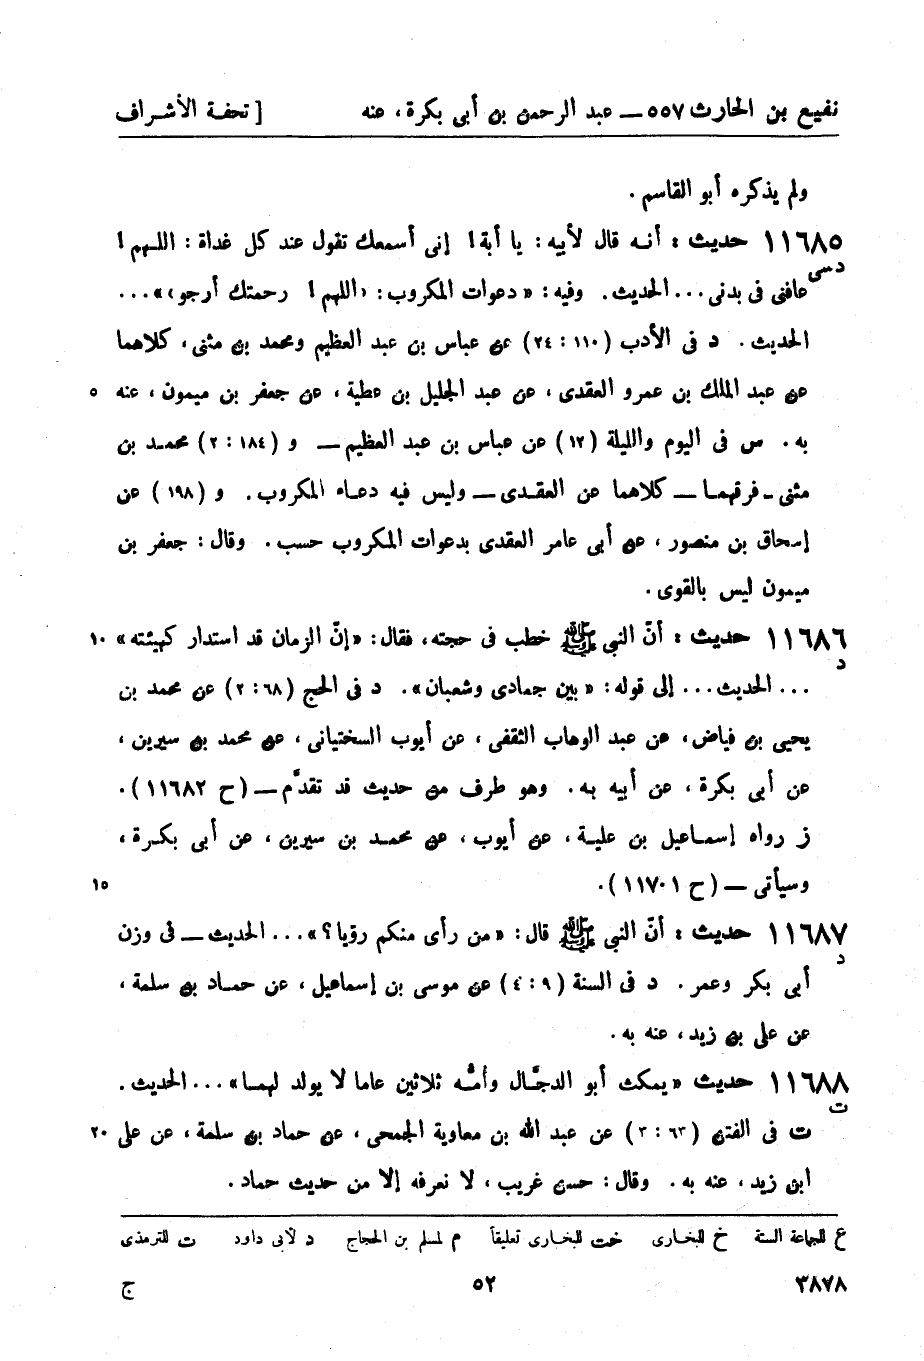 نفيع بن الحارث ٥٥٧ ـ عبد الرحمن بن أبى بكرة ، عنه [ تحفة الأشراف
ولم يذكره أبو القاسم .
١١٦٨٥ حديث : أنه قال لأبيه : يا أبة ! إنى أسمعك تقول عند كل غداة : اللهم !
د سى
عافنى فى بدنى . . . الحديث . وفيه : « دعوات المكروب : ‹اللهم ! رحمتك أرجو›» . . .
الحديث . د فى الأدب ( ١١٠ : ٢٤ ) عن عباس بن عبد العظيم ومحمد بن مثنى ، كلاهما
عن عبد الملك بن عمرو العقدى ، عن عبد الجليل بن عطية ، عن جعفر بن ميمون ، عنه ٥
به . س فى اليوم والليلة ( ١٢ ) عن عباس بن عبد العظيم ـ و ( ١٨٤ : ٢ ) محمد بن
مثنى ـ فرقهما ـ كلاهما عن العقدى ـ وليس فيه دعاء المكروب . و ( ١٩٨ ) عن
إسحاق بن منصور ، عن أبى عامر العقدى بدعوات المكروب حسب . وقال : جعفر بن
ميمون ليس بالقوى .
١١٦٨٦ حديث : أنّ النبى ﷺ خطب فى حجته ، فقال : «إنّ الزمان قد استدار كهيئته» ١٠
د
. . . الحديث . . . إلى قوله : « بين جمادى وشعبان» . د فى الحج ( ٦٨ : ٢ ) عن محمد بن
يحيى بن فياض ، عن عبد الوهاب الثقفى ، عن أيوب السختيانى ، عن محمد بن سيرين ،
عن أبى بكرة ، عن أبيه به . وهو طرف من حديث قد تقدّم ـ ( ح ١١٦٨٢ ) .
ز رواه إسماعيل بن علية ، عن أيوب ، عن محمد بن سيرين ، عن أبى بكرة ،
وسيأتى ـ ( ح ١١٧٠١ ) . ١٥
١١٦٨٧ حديث : أنّ النبى ﷺ قال : «من رأى منكم رؤيا ؟» . . . الحديث ـ فى وزن
د
أبى بكر وعمر . د فى السنة ( ٩ : ٤ ) عن موسى بن إسماعيل ، عن حماد بن سلمة ،
عن على بن زيد ، عنه به .
١١٦٨٨ حديث «يمكث أبو الدجّال وأمّه ثلاثين عاما لا يولد لهما» . . . الحديث .
ت
ت فى الفتن ( ٦٣ : ٣ ) عن عبد الله بن معاوية الجمحى ، عن حماد بن سلمة ، عن على ٢٠
ابن زيد ، عنه به . وقال : حسن غريب ، لا نعرفه إلا من حديث حماد .
ع للجماعة الستة خ للبخارى خت للبخارى تعليقاً م لمسلم بن الحجاج د لأبى داود ت للترمذى
٣٨٧٨ ٥٢ ج